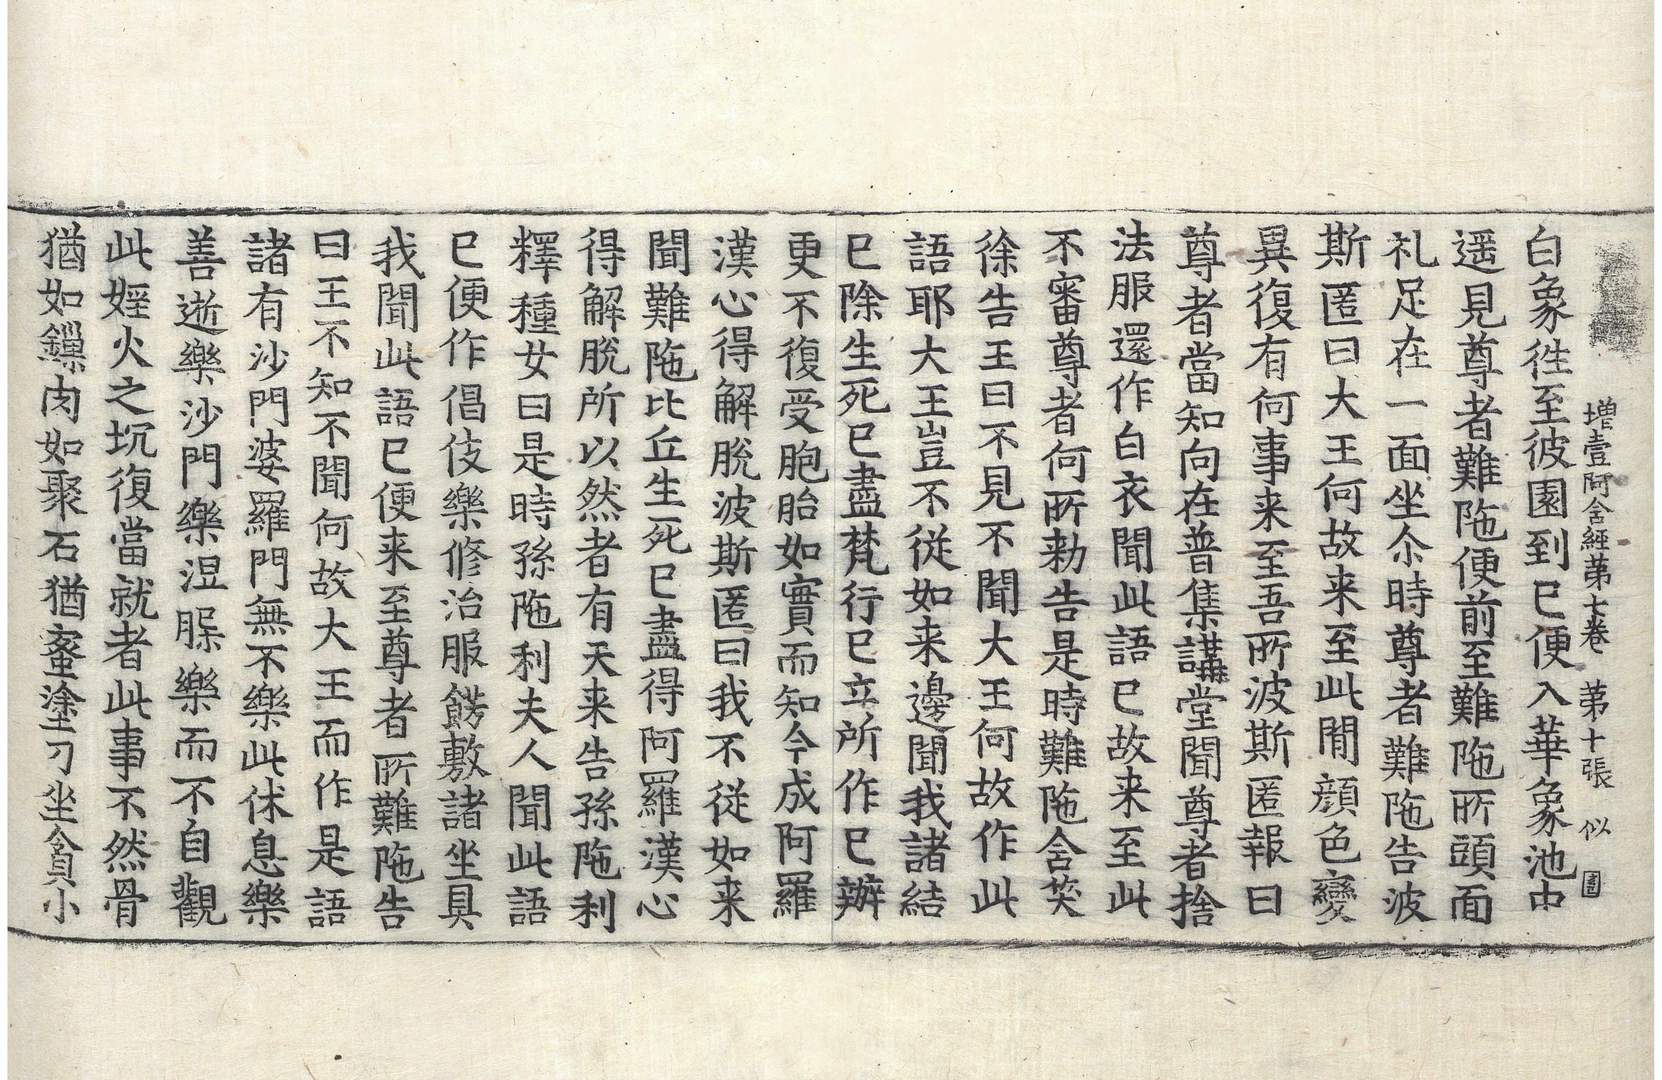 增壹阿含經第七卷 第十張 似
白象徃至彼園到已便入華象池中
遥見尊者難陁便前至難陁所頭面
礼足在一面坐尒時尊者難陁告波
斯匿曰大王何故来至此間顔色變
異復有何事来至吾所波斯匿報曰
尊者當知向在普集講堂聞尊者捨
法服還作白衣聞此語已故来至此
不審尊者何所勑告是時難陁含笑
徐告王曰不見不聞大王何故作此
語耶大王豈不從如来邊聞我諸結
已除生死已盡梵行已立所作已辦
更不復受胞胎如實而知今成阿羅
漢心得解脫波斯匿曰我不從如来
聞難陁比丘生死已盡得阿羅漢心
得解脫所以然者有天来告孫陁利
釋種女曰是時孫陁利夫人聞此語
已便作倡伎樂修治服餝敷諸坐具
我聞此語已便来至尊者所難陁告
曰王不知不聞何故大王而作是語
諸有沙門婆羅門無不樂此休息樂
善逝樂沙門樂涅槃樂而不自觀
此婬火之坑復當就者此事不然骨
猶如鏁肉如聚石猶蜜塗刀坐貪小